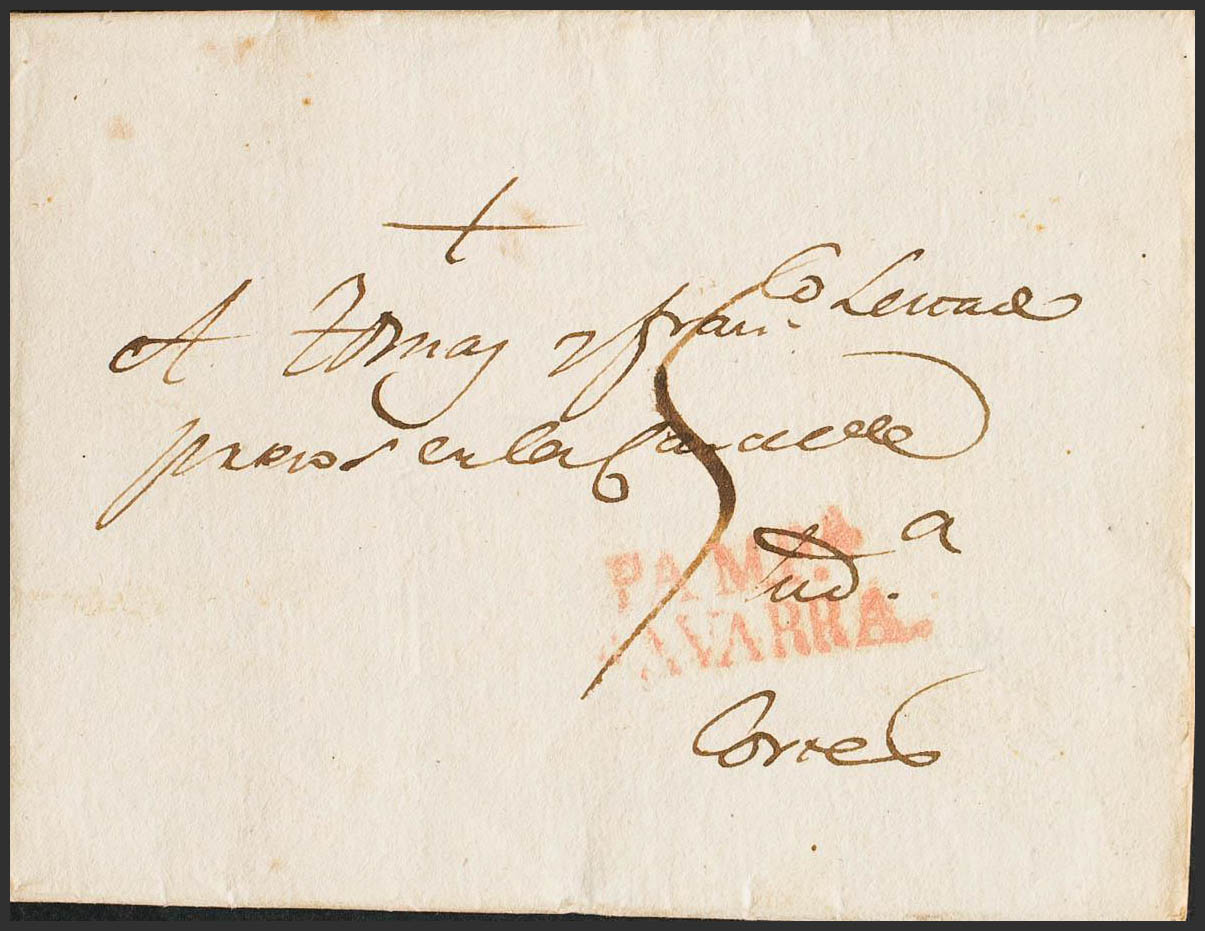 +
A Tomas y Fran.co
presos en la Carcel de
Tud.a
PAMP.
NAVARRA
Correo